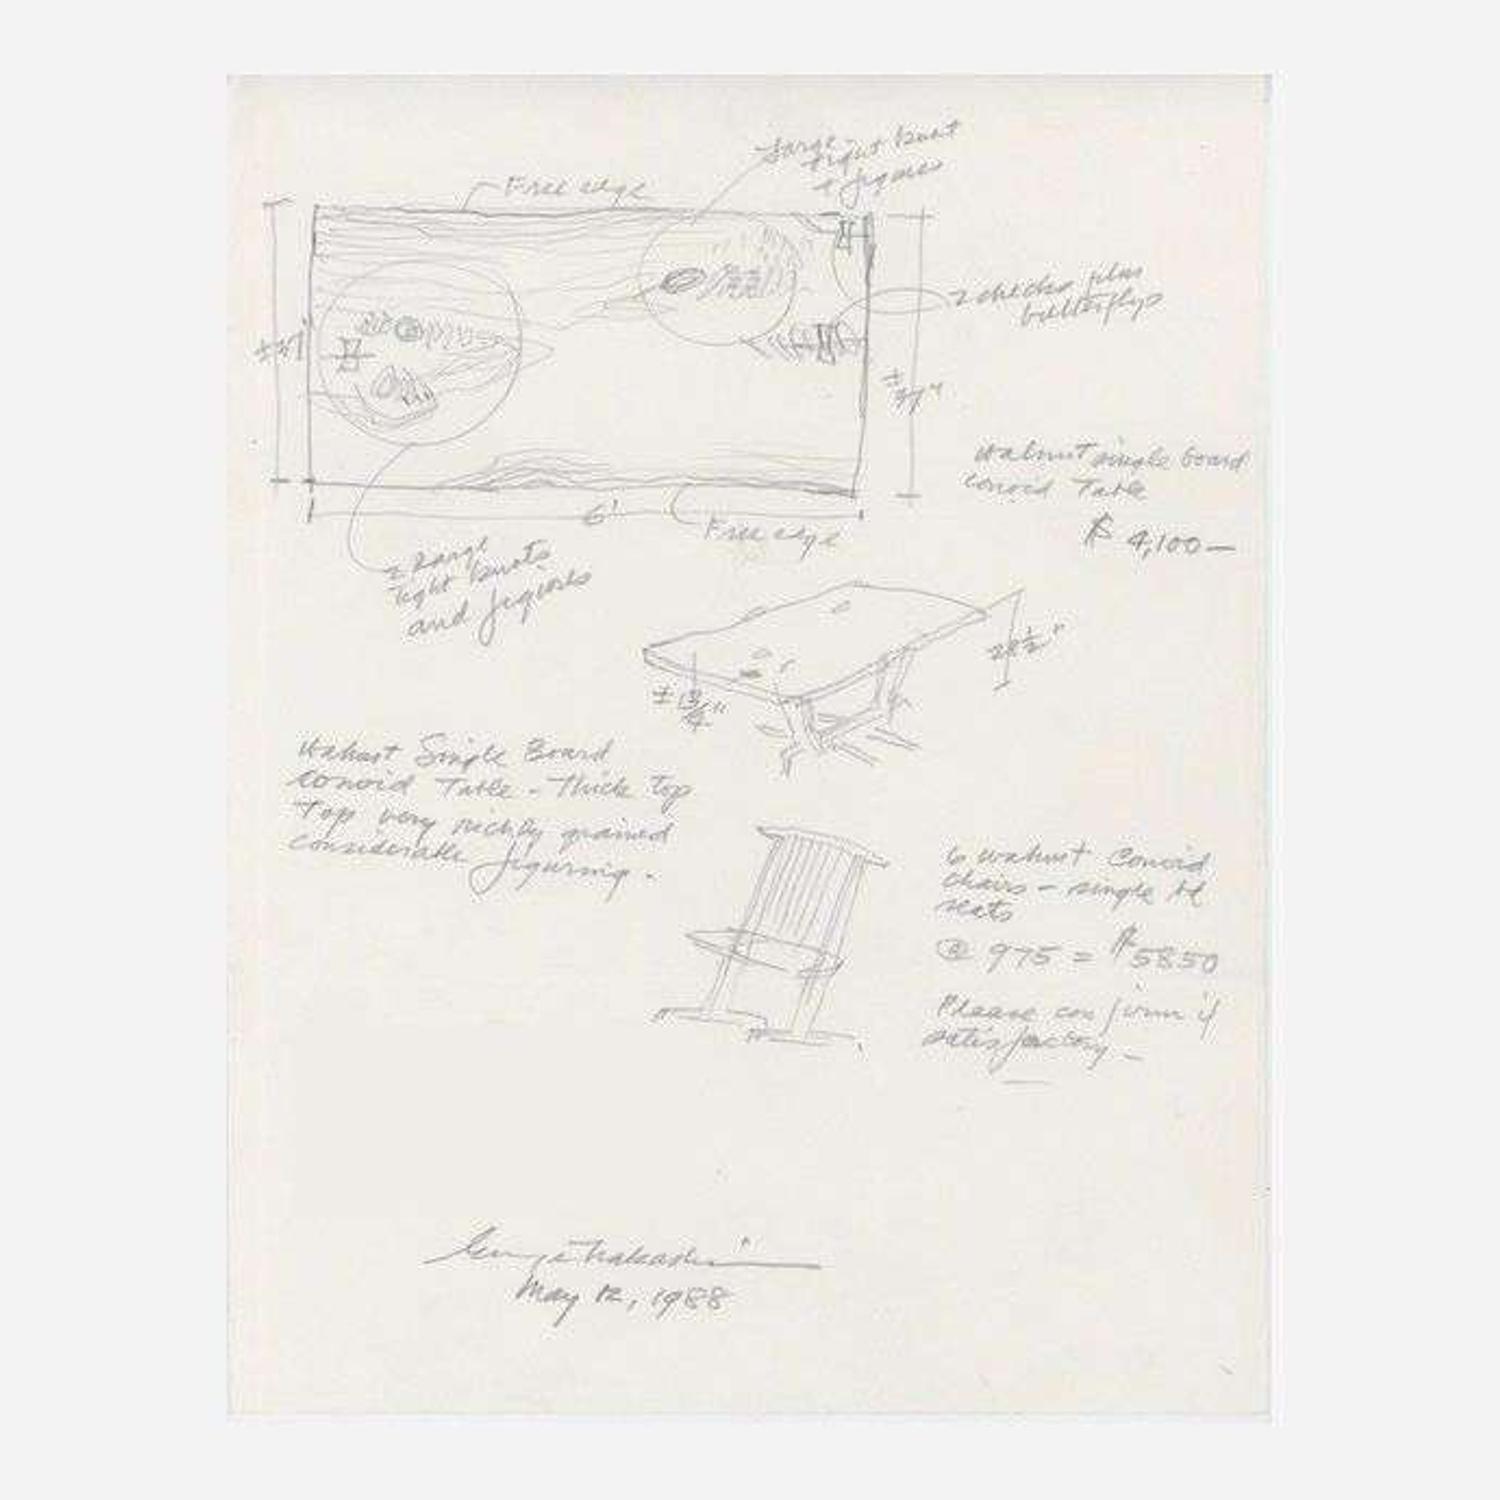 Large
tight knot
+ figures
Free edge
2 checks plus
butterflys
± 37"
Walnut single board
Conoid Table
$ 4,100—
6'
Free edge
2 large
tight knots
and figures
28½"
± 1¾"
Walnut Single Board
Conoid Table - Thick top
Top very richly grained
Considerable figuring.
6 walnut Conoid
chairs - single bd
seats
@ 975 = $5850
Please confirm if
satisfactory —
George Nakashima
May 12, 1988